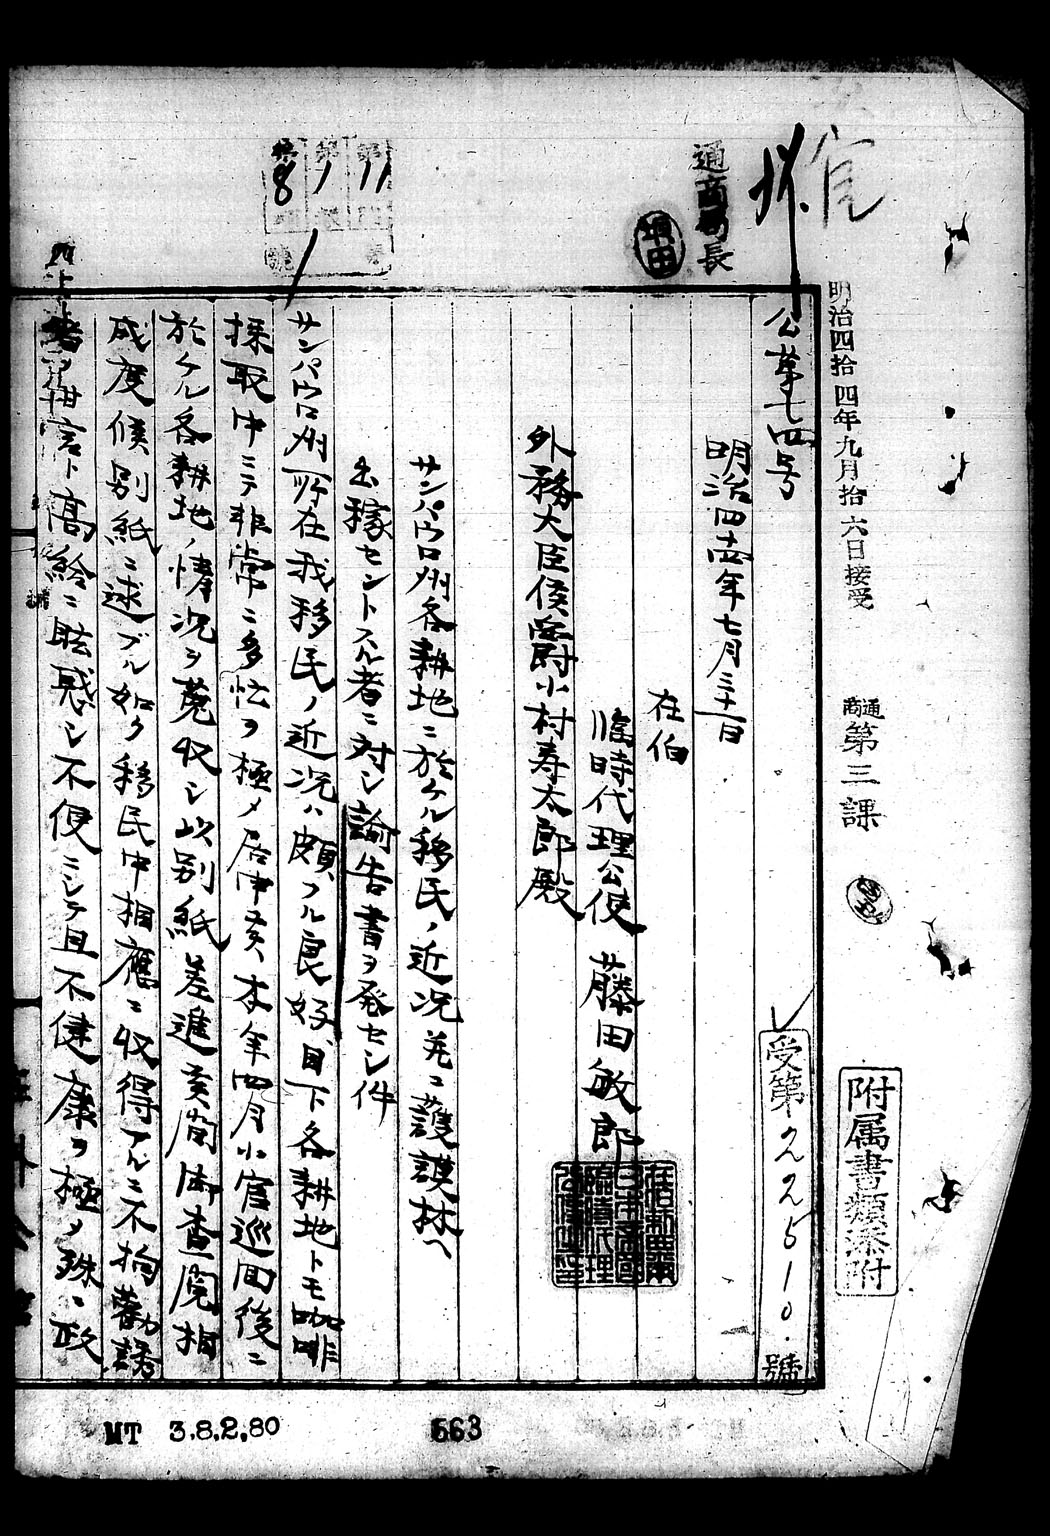 官
明治四拾四年九月拾六日接受
通商
第三課
附属書類添附
通商局長
埴田
公第七四号
受第22510.號
明治四十四年七月三十一日
在伯
臨時代理公使 藤田敏郎
外務大臣侯爵小村寿太郎殿
サンパウロ州各耕地ニ於ケル移民ノ近况並ニ護謨林ヘ
出稼セントスル者ニ対シ諭告書ヲ発セシ件
サンパウロ州所在我移民ノ近况ハ頗フル良好目下各耕地トモ咖啡
採取中ニテ非常ニ多忙ヲ極メ居申候本年四月小官巡回後ニ
於ケル各耕地ノ情况ヲ蒐収シ以別紙差進候間御査閲相
成度候別紙ニ逑ブル如ク移民中相應ニ収得アルニ不拘勧誘
者ノ甘言ト高給ニ眩惑シ不便ニシテ且不健康ヲ極メ殊ニ政
MT 3.8.2.80
563